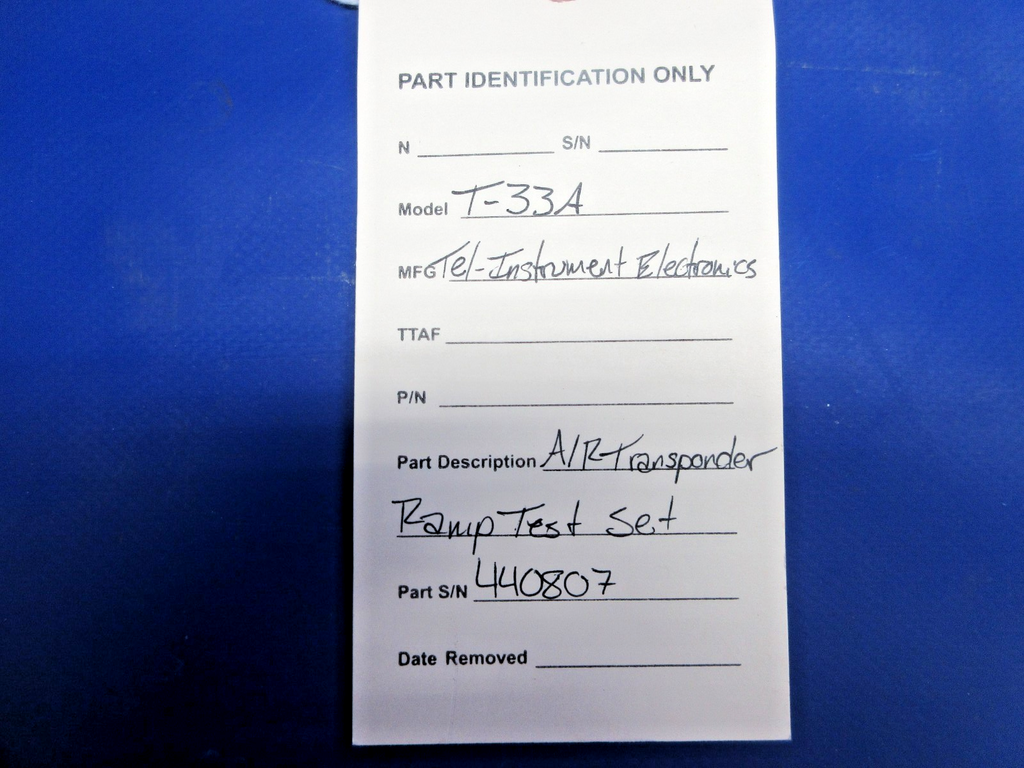 PART IDENTIFICATION ONLY
N ____________ S/N ____________
Model T-33A
MFG Tel-Instrument Electronics
TTAF ____________
P/N ____________
Part Description A/R Transponder
Ramp Test Set
Part S/N 440807
Date Removed ____________